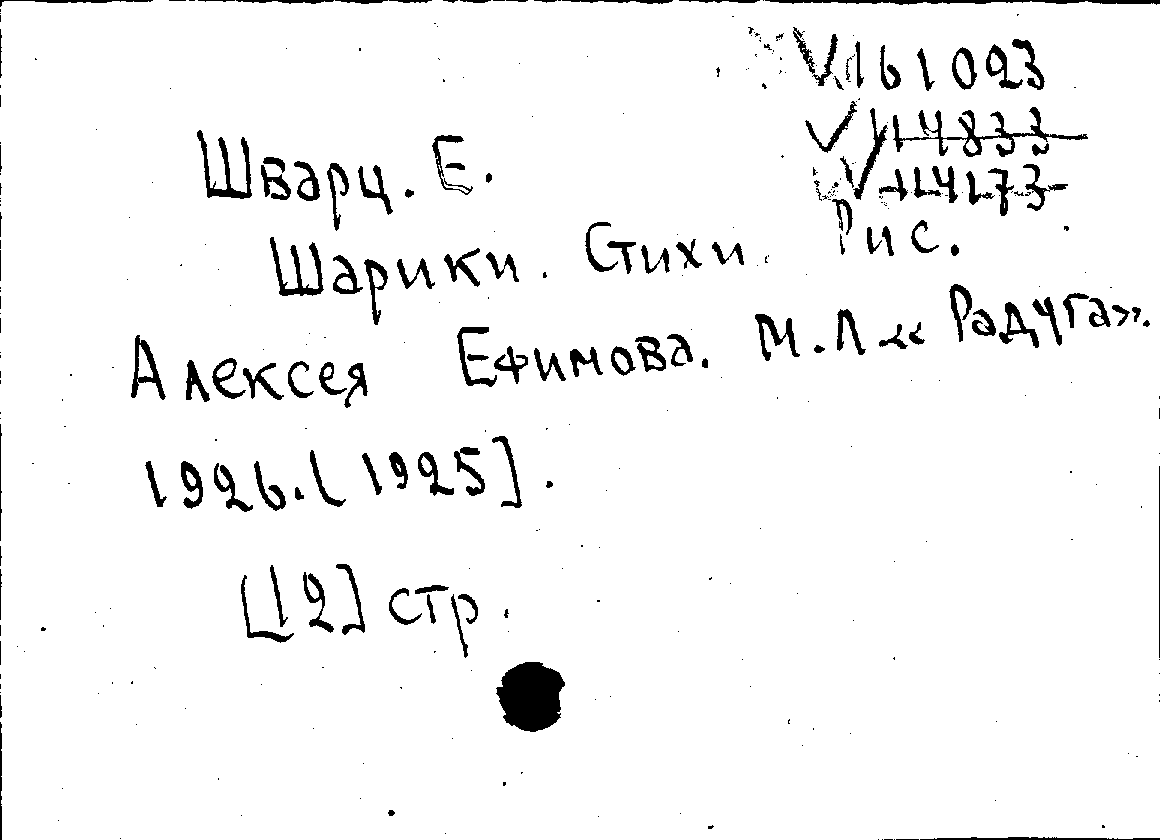 V 161023
V 114833
V 114173
Шварц. Е.
Шарики. Стихи. Рис.
Алексея Ефимова. М.Л «Радуга».
1926. [1925].
[12] стр.